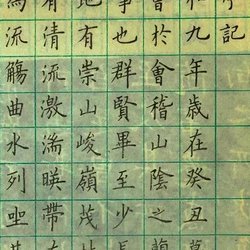 記
和九年歲在癸丑暮
會於會稽山陰之蘭
事也群賢畢至少長
地有崇山峻嶺茂林
有清流激湍暎帶左
為流觴曲水列坐其